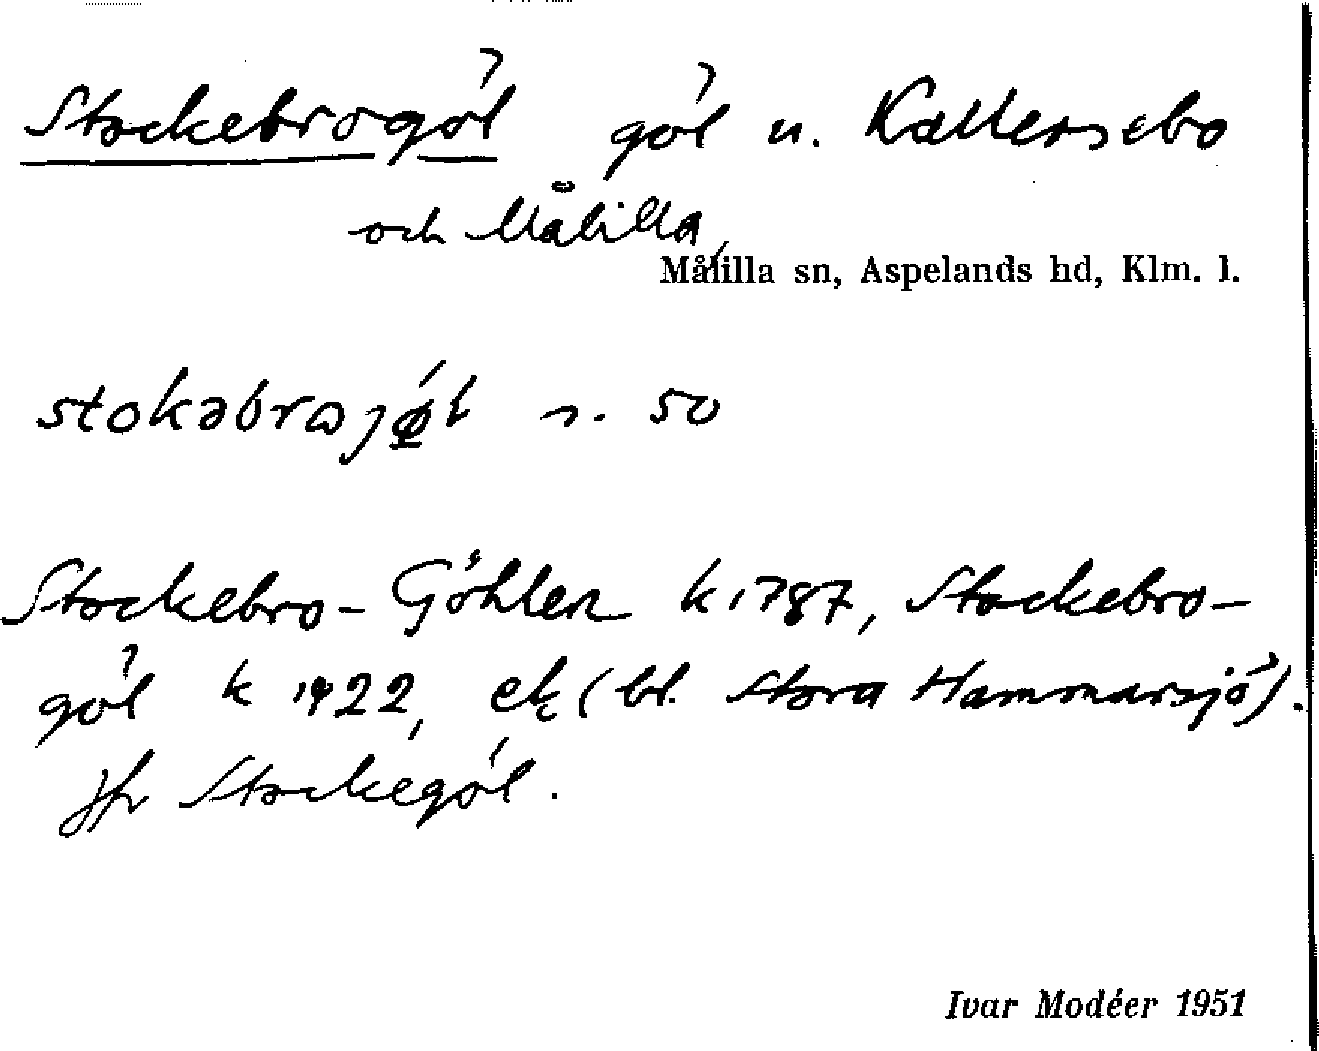 Stockebrogöl göl u. Kallersebo
och Målilla,
Målilla sn, Aspelands hd, Klm. l.
stokəbrɷjø̀l s. 50
Stockebro-Göhlen k 1787, Stockebro-
göl k 1922, ek (bl. Stora Hammarsjö).
Jfr Stockegöl.
Ivar Modéer 1951